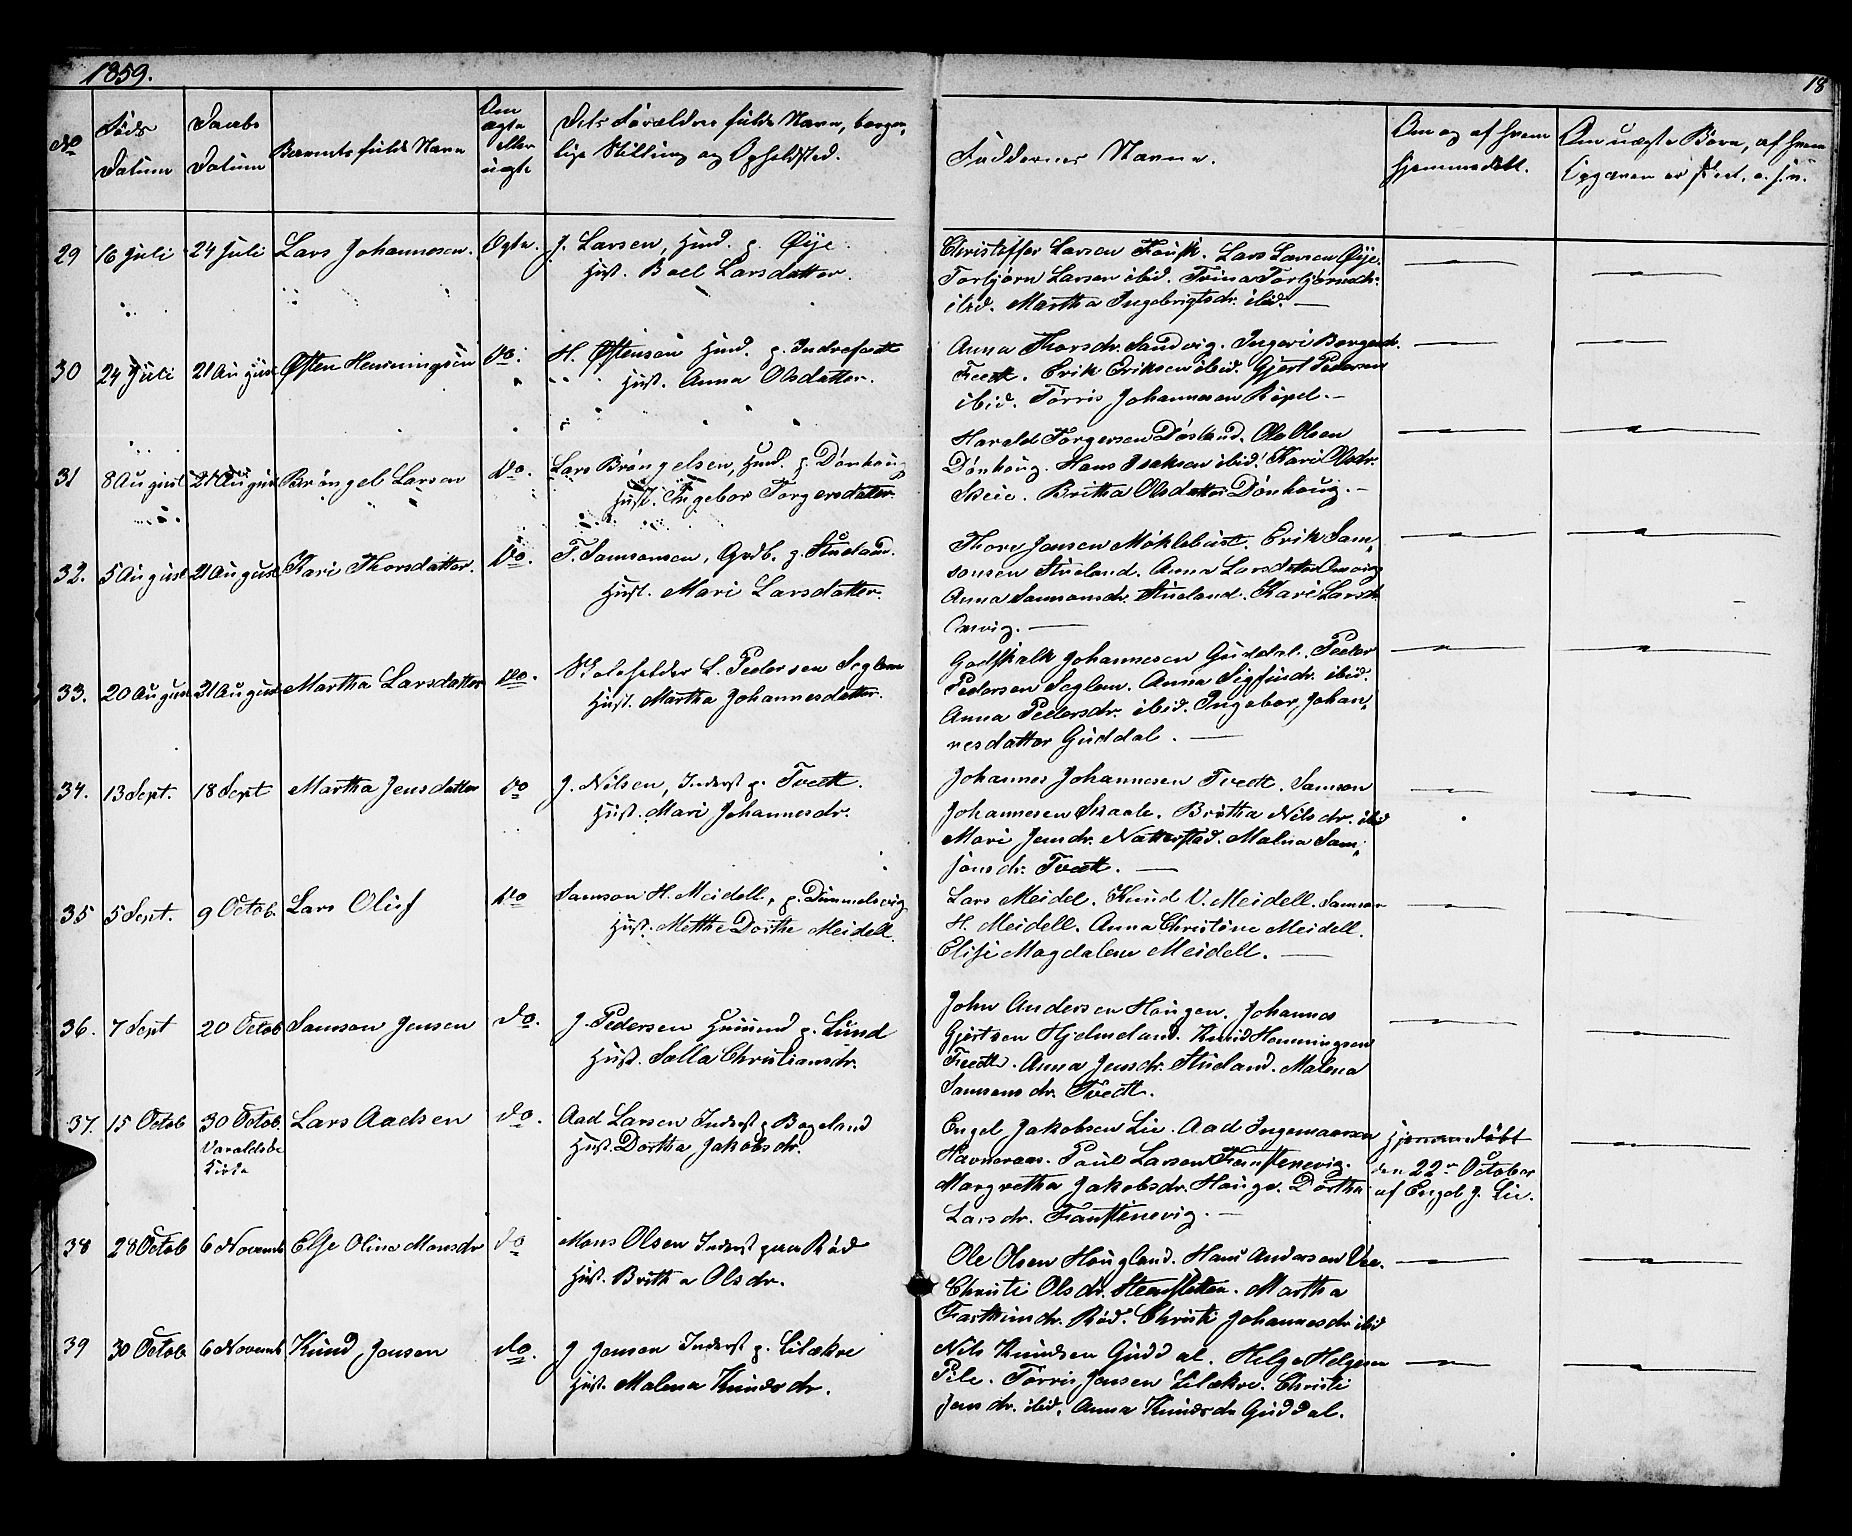 1859.
18
No
Føds
Datum
Daabs
Datum
Barnets fulde Navn
Om
ægte
eller
uægte
Dets Forældres fulde Navn, borger-
lige Stilling og Opholdsted.
Faddernes Navne.
Om og af hvem
hjemmedøbt.
Om uægte Børn, af hvem
29 16 Juli 24 Juli Lars Johannesen. Ægte. J. Larsen, Hmd. p. Øye.
Hust. Boel Larsdatter.
Christoffer Larsen Fausk. Lars Larsen Øye.
Torbjørn Larsen ibid. Trina Torbjørnsdr.
ibid. Martha Ingebrigtsdr. ibid. —
30 24 Juli 21 August Østen Henningsen do. H. Østensen Hmd. p. Indrefædt
Hust. Anna Olsdatter.
Anna Thorsdr. Sandvig. Ingeri Borgesdr.
Fædt. Erik Eriksen ibid. Gjert Pedersen
ibid. Tørris Johannesen Røpel. —
31 8 August 21 August Brøngel Larsen do. Lars Brøngelsen, Hmd. p. Dønhoug
Hust. Ingebor Torgersdatter.
Harald Torgersen Døsland. Ole Olsen
Dønhoug. Hans Isaksen ibid. Kari Olsdr.
Skeie. Britha Olsdatter Dønhoug. —
32. 5 August 21 August Kari Thorsdatter. do. T. Samsonsen, Grdb. p. Stueland.
Hust. Mari Larsdatter.
Thore Jensen Møklebust. Erik Sam-
sonsen Stueland. Anna Larsdatter Omvig
Anna Samsonsdr. Stueland. Kari Larsdr.
Omvig. —
33. 20 August 21 August Martha Larsdatter do. Skoleholder L. Pedersen Seglem
Hust. Martha Johannesdatter.
Godskalk Johannesen Guddal. Peder
Pedersen Seglem. Anna Sigfusdr. ibid.
Anna Pedersdr. ibid. Ingebor Johan-
nesdatter Guddal. —
34. 13 Sept. 18 Sept Martha Jensdatter do J. Nilsen, Inderst p. Tvedt.
Hust. Mari Johannesdr.
Johannes Johannesen Tvedt. Samson
Johannesen Skaale. Britha Nilsdr. ibid
Mari Jensdr. Natterstad. Malna Sam-
sonsdr. Tvedt. —
35 5 Sept. 9 Octob. Lars Oluf do Samson H. Meidell, p. Dummelsvig
Hust. Metthe Dorthe Meidell.
Lars Meidel. Knud V. Meidell. Samson
H. Meidell. Anna Christine Meidell.
Elise Magdalene Meidell. —
36. 7 Sept 20 Octob Samson Jensen do. J. Pedersen Huusmd p. Lund
Hust. Sella Christiansdr.
John Andersen Haugen. Johannes
Gjertsen Hjelmeland. Knud Henningsen
Fædt. Anna Jensdr. Stueland. Malena
Samsonsdr. Tvedt.
37. 15 Octob 30 Octob. Lars Aadsen do. Aad Larsen Inderst p Bogeland
Varaldsøe
Kirke
Hust. Dortha Jakobsdr.
Engel Jakobsen Lie. Aad Ingemarsen
Havneraas. Paul Larsen Faustenevig.
Margretha Jakobsdr. Hauge. Dortha
Larsdr. Faustenevig. —
Hjemmedøbt
den 22n October
af Engel J. Lie.
38 28 Octob 6 Novemb Else Olina Monsdr do Mons Olsen Inderst paa Rød
Hust. Britha Olsdr.
Ole Olsen Hougland. Hans Andersen Vee.
Christi Olsdr. Steenstetten. Martha
Farthunsdr. Rød. Christi Johannesdr ibid
39 30 Octob 6 Novemb. Knud Jensen do. J Jensen Inderst p. Lilækre
Hust. Malena Knudsdr.
Nils Knudsen Guddal. Helge Helgesen
Pile. Tørris Jensen Lilækre. Christi
Jensdr. ibid. Anna Knudsdr Guddal.